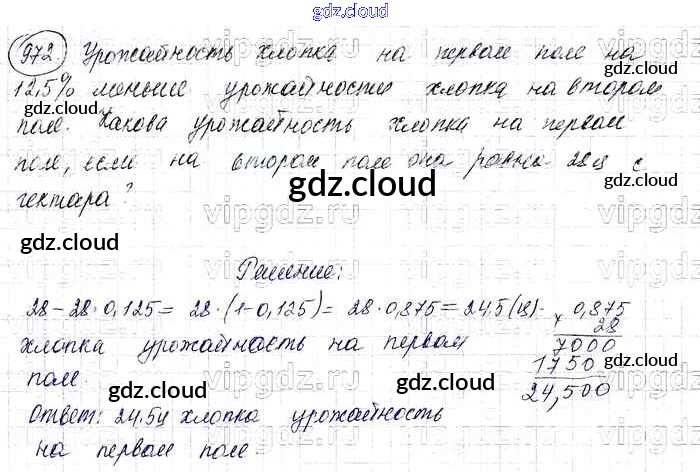 gdz.cloud
972. Урожайность хлопка на первом поле на
12,5% меньше урожайности хлопка на втором
поле. Какова урожайность хлопка на первом
поле, если на втором поле она равна 28 ц с
гектара?
Решение:
28 - 28·0,125 = 28·(1-0,125) = 28·0,875 = 24,5 (ц).
хлопка урожайность на первом
поле.
× 0,875
28
7000
1750
24,500
Ответ: 24,5 ц хлопка урожайность
на первом поле
gdz.cloud
gdz.cloud
gdz.cloud
gdz.cloud
gdz.cloud
gdz.cloud
gdz.cloud
gdz.cloud